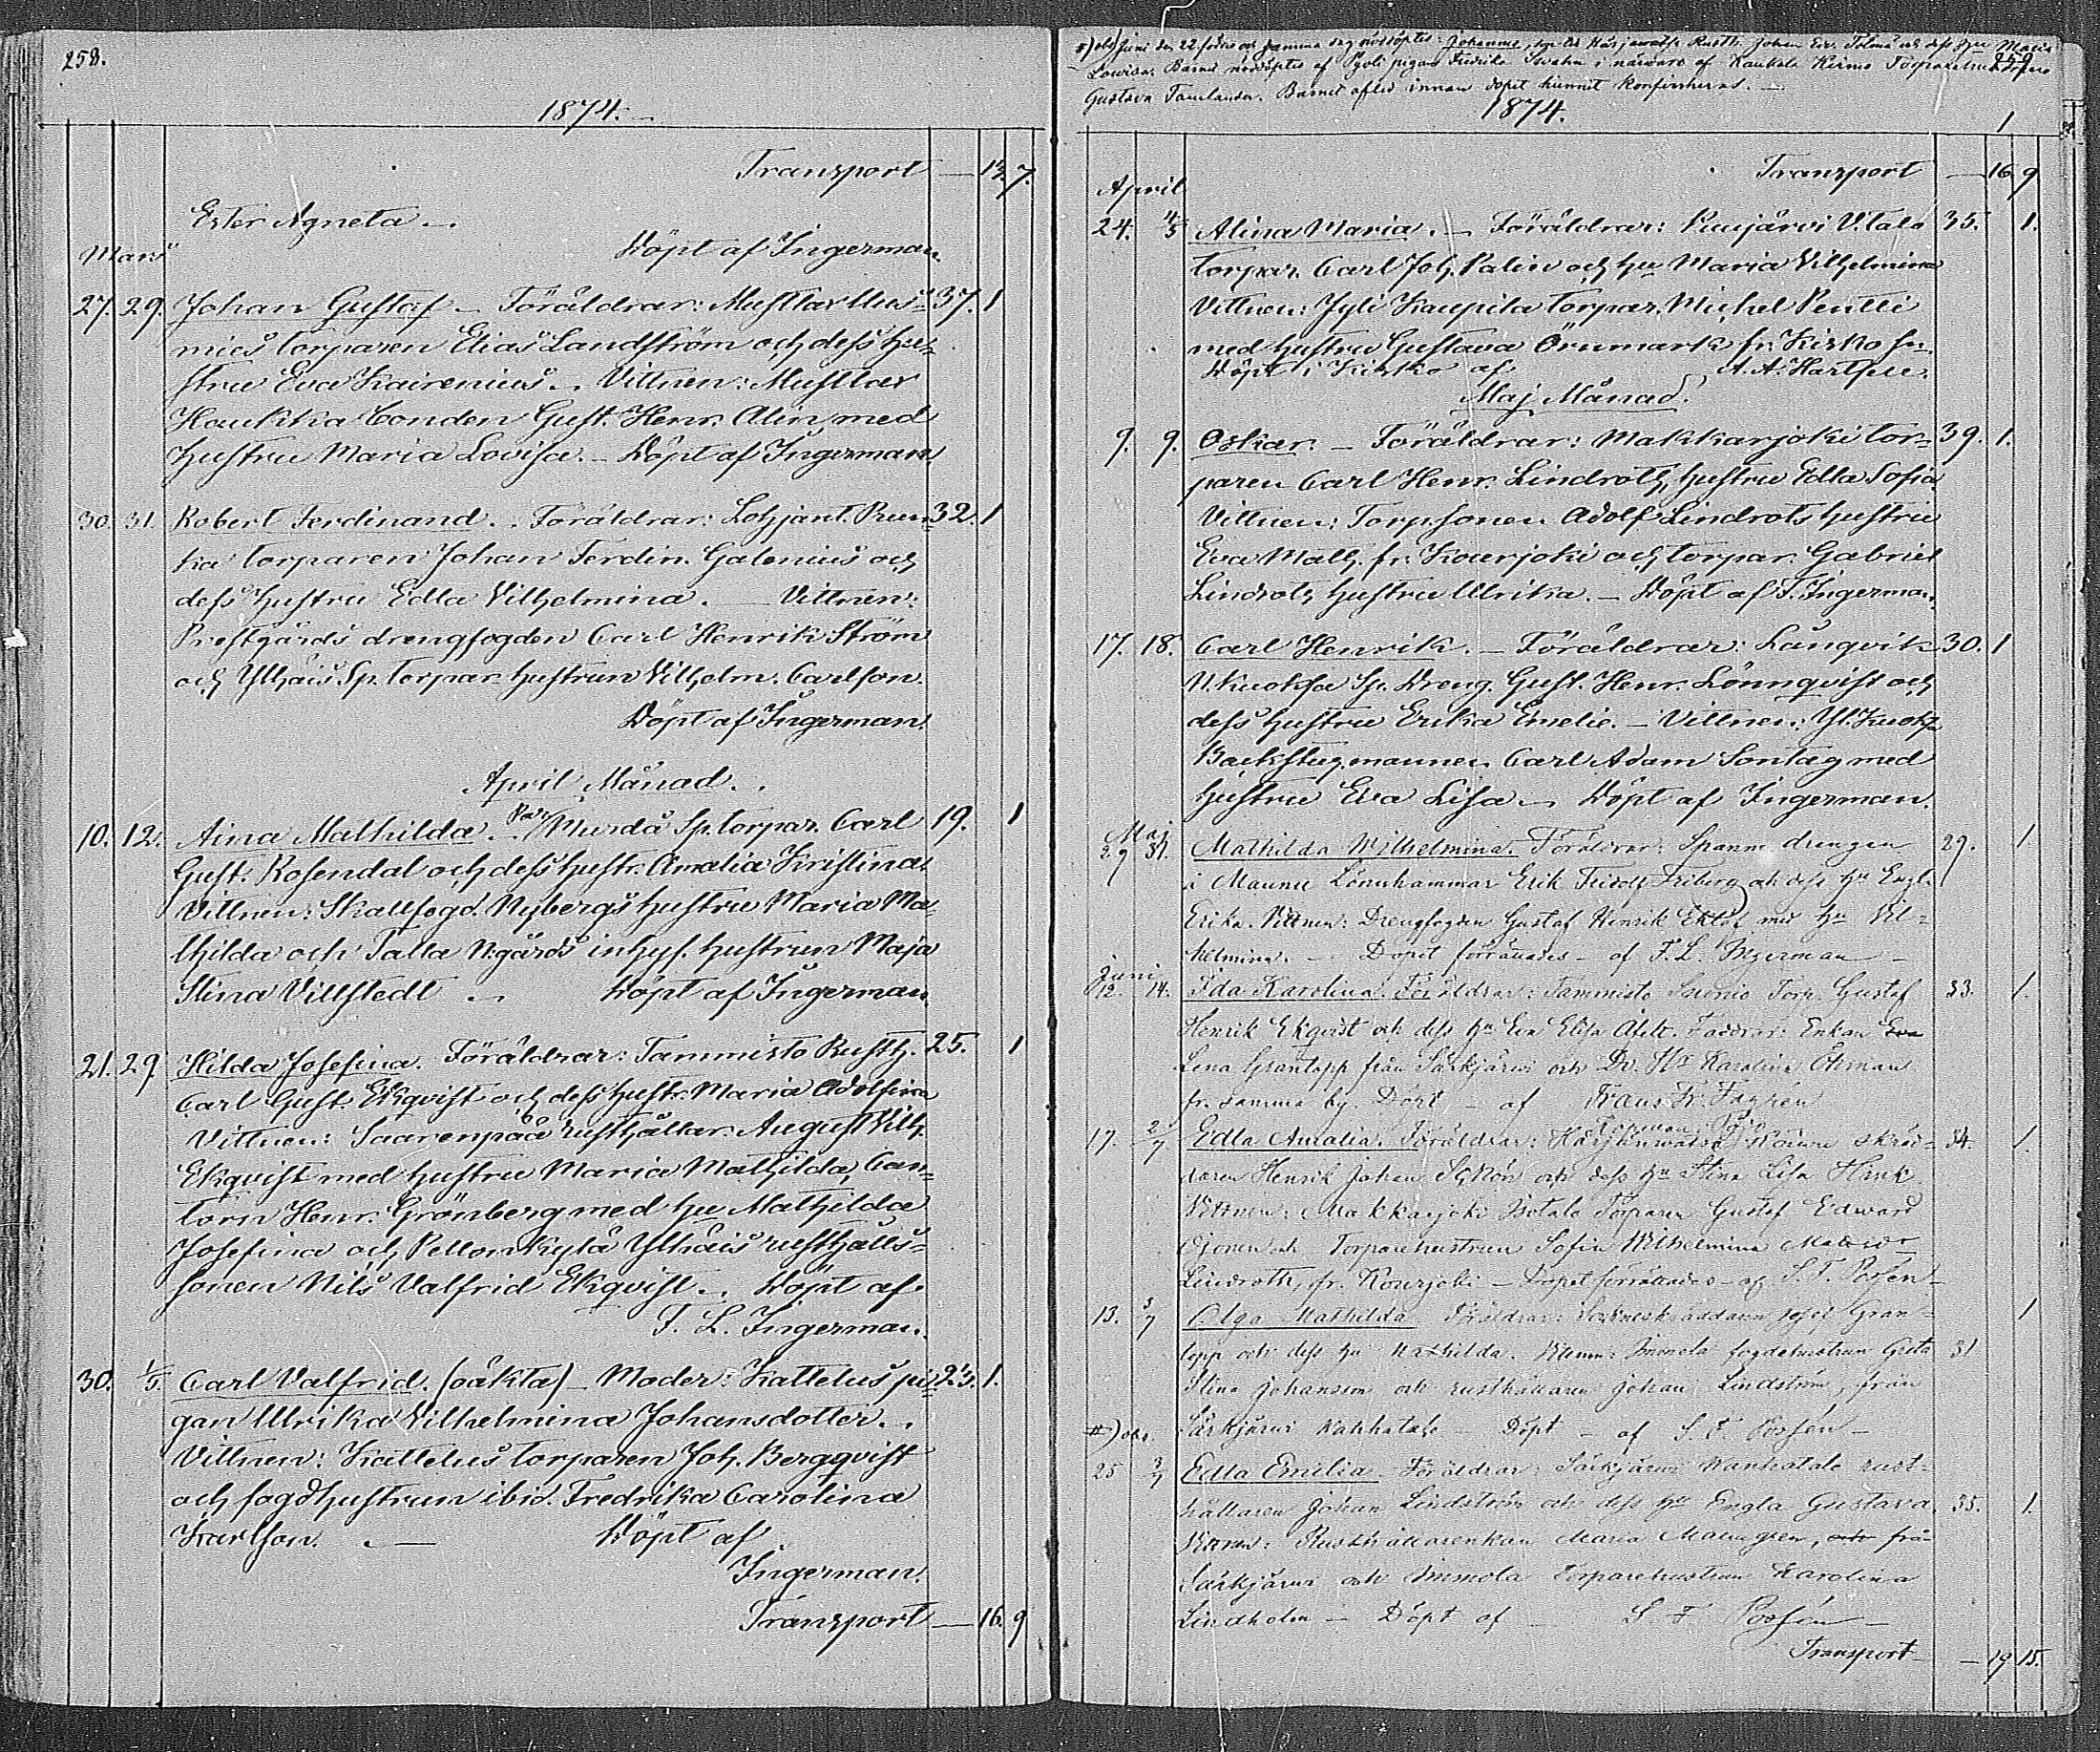 258.
1874.
Transport — 13. 7.
Ester Agneta. —
Mars
Döpt af Ingerman.
27. 29. Johan Gustaf. — Föräldrar: Mustlax Uus= 37. 1
mies torparen Elias Landström och dess hu=
stru Eva Kairenius. — Vittnen: Mustlax
Haukka bonden Gust. Henr. Alin, med
hustru Maria Lovisa. — Döpt af Ingerman.
30. 31. Robert Ferdinand. . Föräldrar: Lohjant. Run= 32. 1
ka torparen Johan Ferdin. Galenius och
dess hustru Edla Vilhelmina. — Vittnen:
Prestgårds drengfogden Carl Henrik Ström
och Ylhäis Sp. torpar hustrun Vilhelm. Carlson.
Döpt af Ingerman.
April Månad. .
10. 12. Aina Mathilda. Murdå Sp. torpar. Carl 19. 1
Gust. Rosendal och dess hustr. Amalia Kristina.
Vittnen: Skallfogd. Nybergs hustru Maria Ma=
thilda och Talla N:gårds inhys. hustrun Maja
Stina Villstedt — Döpt af Ingerman.
21. 29 Hilda Josefina. Föräldrar: Tammisto Rusth. 25. 1
Carl Gust. Ekqvist och dess hustr. Maria Adolfina
Vittnen: Saarenpää rusthållar. August Vilh.
Ekqvist med hustru Maria Mathilda, Can=
torn Henr. Grönberg med hu Mathilda
Josefina och Pellonkylä Ylhäis rusthålls=
sonen Nils Valfrid Ekqvist. . Döpt af
F. L. Ingerman.
30. 1/5. Carl Valfrid. (oäkta) — Moder: Kattelus pi= 23. 1.
gan Ulrika Vilhelmina Johansdotter. .
Vittnen: Kattelus torparen Joh. Bergqvist
och fogdhustrun ibid. Fredrika Carolina
Karlson. — Döpt af
Ingerman.
Transport — 16. 9
#) obs/ Juni den 22 föddes och samma dag nöddöptes: Johannes, Rusth. Johan och dess hu Maria
Lovisa. Barnet nöddöptes af pigan Fredrika i närvaro af Kaukola Torparehustrun
Gustava. Barnet afled innan dopet hunnit konfirmeras. —
259
1874.
1
Transport — 16 9
April
24. 4/5 Alina Maria. — Föräldrar: V.talo 35. 1.
torpar. Carl Joh. Palin och hu Maria Vilhelmina
Vittnen: Jyli Kaupila torpar. Michel Pentti
med hustru Gustava Örnmark fr. Kisko sn.
Döpt i Kisko af A. A. Hartsell.
Maj Månad.
9. 9. Oskar. — Föräldrar: Makkarjoki tor= 39. 1.
paren Carl Henr. Lindroth, hustru Edla Sofia.
Vittnen: Torp.sonen Adolf Lindrots hustru
Eva Math. fr. Kourjoki och torpar. Gabriel
Lindroth hustru Ulrika. — Döpt af F. Ingerman.
17. 18. Carl Henrik. — Föräldrar: Långvik 30. 1
N.kuoksa Sp. Dreng. Gust. Henr. Lönnqvist och
dess hustru Erika Emelie. — Vittnen: Yl. Kuoks
Backstug.mannen Carl Adam Sontag med
hustru Eva Lisa — Döpt af Ingerman.
Maj
29 31. Mathilda Wilhelmina. Föräldrar: Spanm drengen 29. 1
i Maunu Lönnhammar Erik Fridolf Friberg och dess hu Engl.
Erika. Vittnen: Drengfogden Gustaf Henrik Eklöf med hu Vil=
helmina. — Dopet förrättades — af F. L. Ingerman —
Juni
12. 14. Ida Karolina. Föräldrar: Tammisto Torp. Gustaf 33. 1.
Henrik Ekqvist och dess hu Eva Elisa. Faddrar: Enkan Eva
Lena Grantopp från Särkjärvi och Karolina Öhman
fr. samma by. Döpt — af Frans Fr. Fagrén
17. 2/7. Edla Amalia. Föräldrar: skräd= 34. 1.
daren Henrik Johan och dess hu Stina Lisa
Vittnen: Makkarjoki Isotalo Torparen Gustaf Edward
och Torparehustrun Sofia Wilhelmina
Lindroth, fr. Kourjoki — Dopet förrättades — af S. F. Posén
13. 3/7 Olga Mathilda Föräldrar: Sockneskräddaren Josef Gran= 1
topp och dess hu Mathilda. Vittnen: Immola fogdehustrun Greta 31
Stina Johansson och rusthållaren Johan Lindström, från
#) obs. Särkjärvi — Döpt — af S. F. Posén —
25 3/7 Edla Emilia Föräldrar: Särkjärvi rust=
hållaren Johan Lindström och dess hu Engla Gustava. 35. 1.
Vittnen: Rusthållarenkan Maria Malmgren, från
Särkjärvi och Immola Torparehustrun Karolina
Lindholm — Döpt af — S F Posén —
Transport — 19 15.